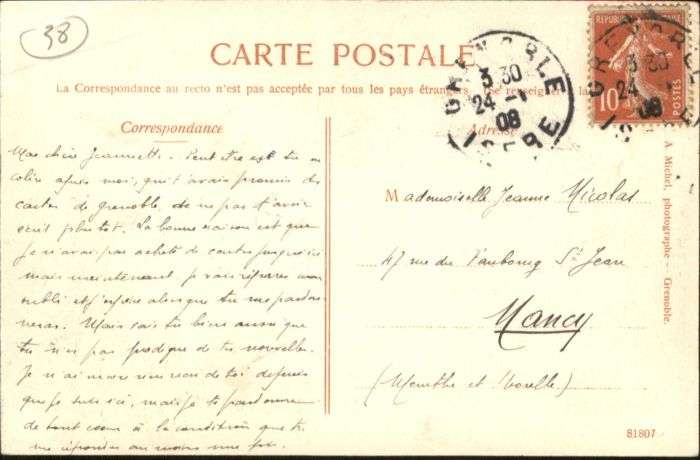 38
CARTE POSTALE
La Correspondance au recto n'est pas acceptée par tous les pays étrangers
Se renseigner à la
Correspondance
Adresse
Ma chère Jeannette. Peut être est tu en
colère après moi, qui t'avais promis des
cartes de grenoble, de ne pas t'avoir
écrit plus tot. La bonne raison est que
je n'avais pas acheté de cartes jusqu'ici
mais maintenant je vais réparer mon
oubli et j'espère alors que tu me pardon
neras. Mais sais tu bien aussi que
tu n'es pas prodigue de tes nouvelles.
Je n'ai encore rien recu de toi depuis
que je suis ici, mais je te pardonne
de tout coeur à la condition que tu
me répondes au moins une fois.
Mademoiselle Jeanne Nicolas
47 rue du Faubourg St Jean
Nancy
(Meurthe et Moselle)
A Michel, photographe - Grenoble.
81807
GRENOBLE
3 30
24 - 1
08
ISERE
REPUBLIQUE FRANÇAISE
10
POSTES
GRENOBLE
3 30
24 - 1
08